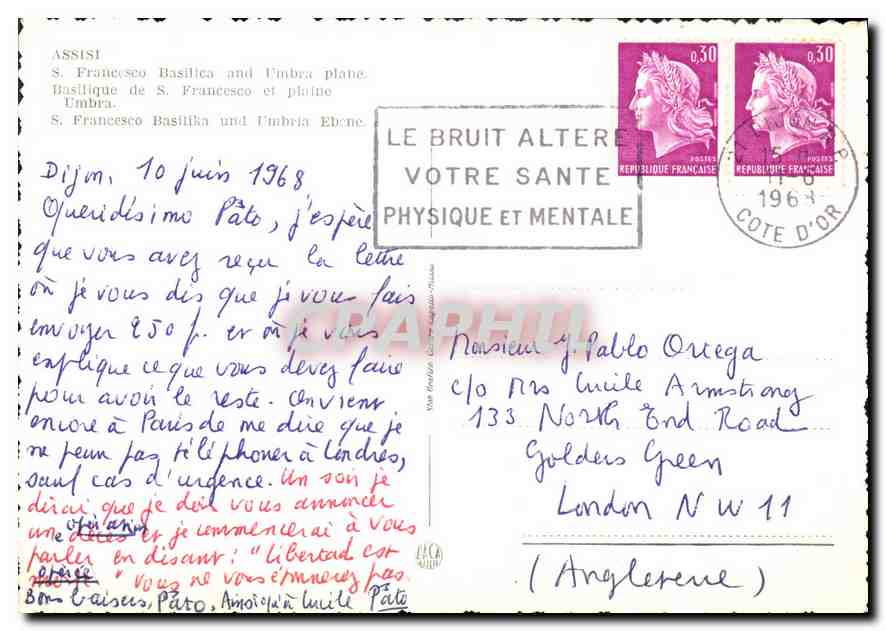 ASSISI
S. Francesco Basilica and Umbra plane.
Basilique de S. Francesco et plaine
Umbra.
S. Francesco Basilika und Umbria Ebene.
0,30
POSTES
REPUBLIQUE FRANÇAISE
0,30
POSTES
REPUBLIQUE FRANÇAISE
LE BRUIT ALTERE
VOTRE SANTE
PHYSIQUE ET MENTALE
21 DIJON R.P
15 H
11-6
1968
COTE D'OR
Dijon, 10 juin 1968
Queridísimo Pato, j'espère
que vous avez reçu la lettre
où je vous dis que je vous fais
envoyer 250 f. et où je vous
explique ce que vous devez faire
pour avoir le reste. On vient
encore à Paris de me dire que je
ne peux pas téléphoner à Londres,
sauf cas d'urgence. Un soir je
dirai que je dois vous annoncer
une opération et je commencerai à vous
parler en disant: "Libertad est
opérée" Vous ne vous émouvrez pas.
Bons baisers, Pato, Ainsi qu'à Lucile Pato
CPAPHIL
Monsieur J. Pablo Ortega
c/o Mrs Lucile Armstrong
133 North End Road
Golders Green
London N W 11
(Angleterre)